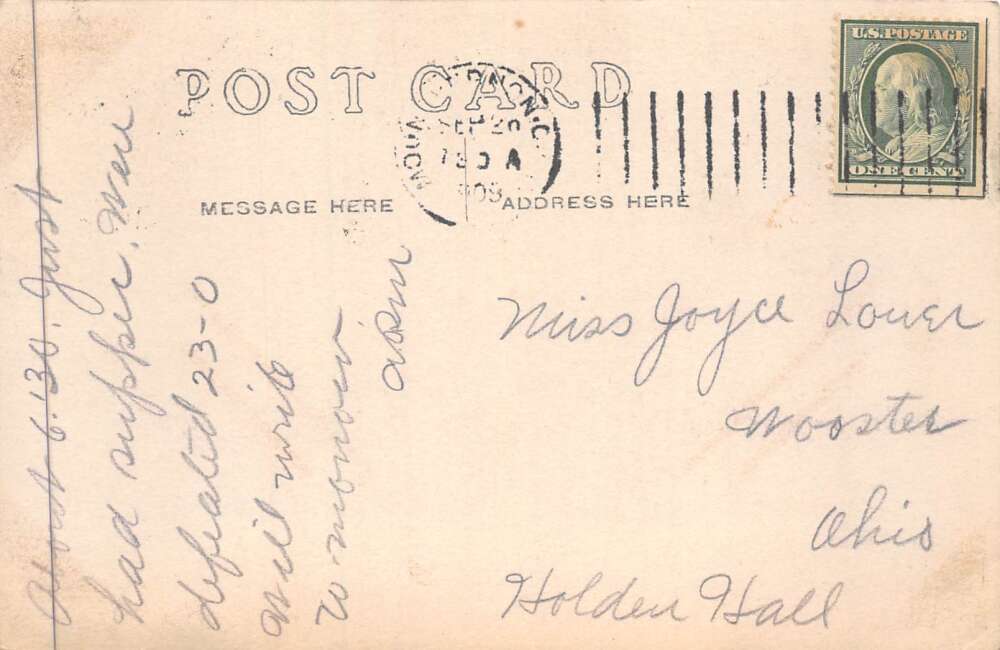 POST CARD
SEP 20
7 30 A
MESSAGE HERE
ADDRESS HERE
U.S. POSTAGE
ONE CENT
About 6:30. Just
had supper. Were
defeated 23-0
Will write
tomorrow
Miss Joyce Lower
Wooster
Ohio
Holden Hall